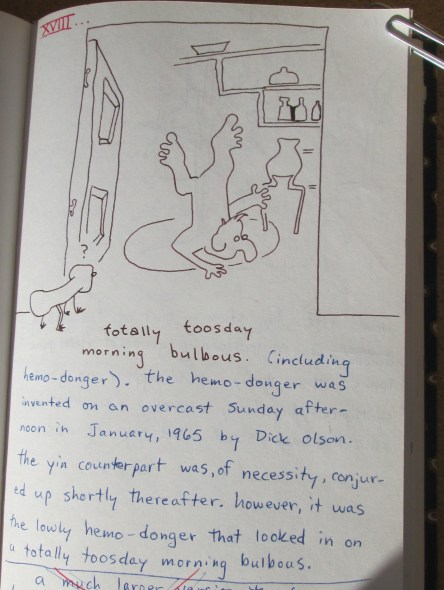 XVIII...
?
totally toosday
morning bulbous. (including
hemo-donger). the hemo-donger was
invented on an overcast Sunday after-
noon in January, 1965 by Dick Olson.
the yin counterpart was, of necessity, conjur-
ed up shortly thereafter. however, it was
the lowly hemo-donger that looked in on
a totally toosday morning bulbous.
a much larger